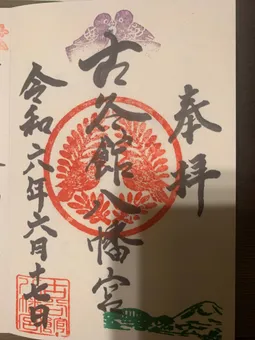 奉拝
古尓館八幡宮
令和六年六月十七日